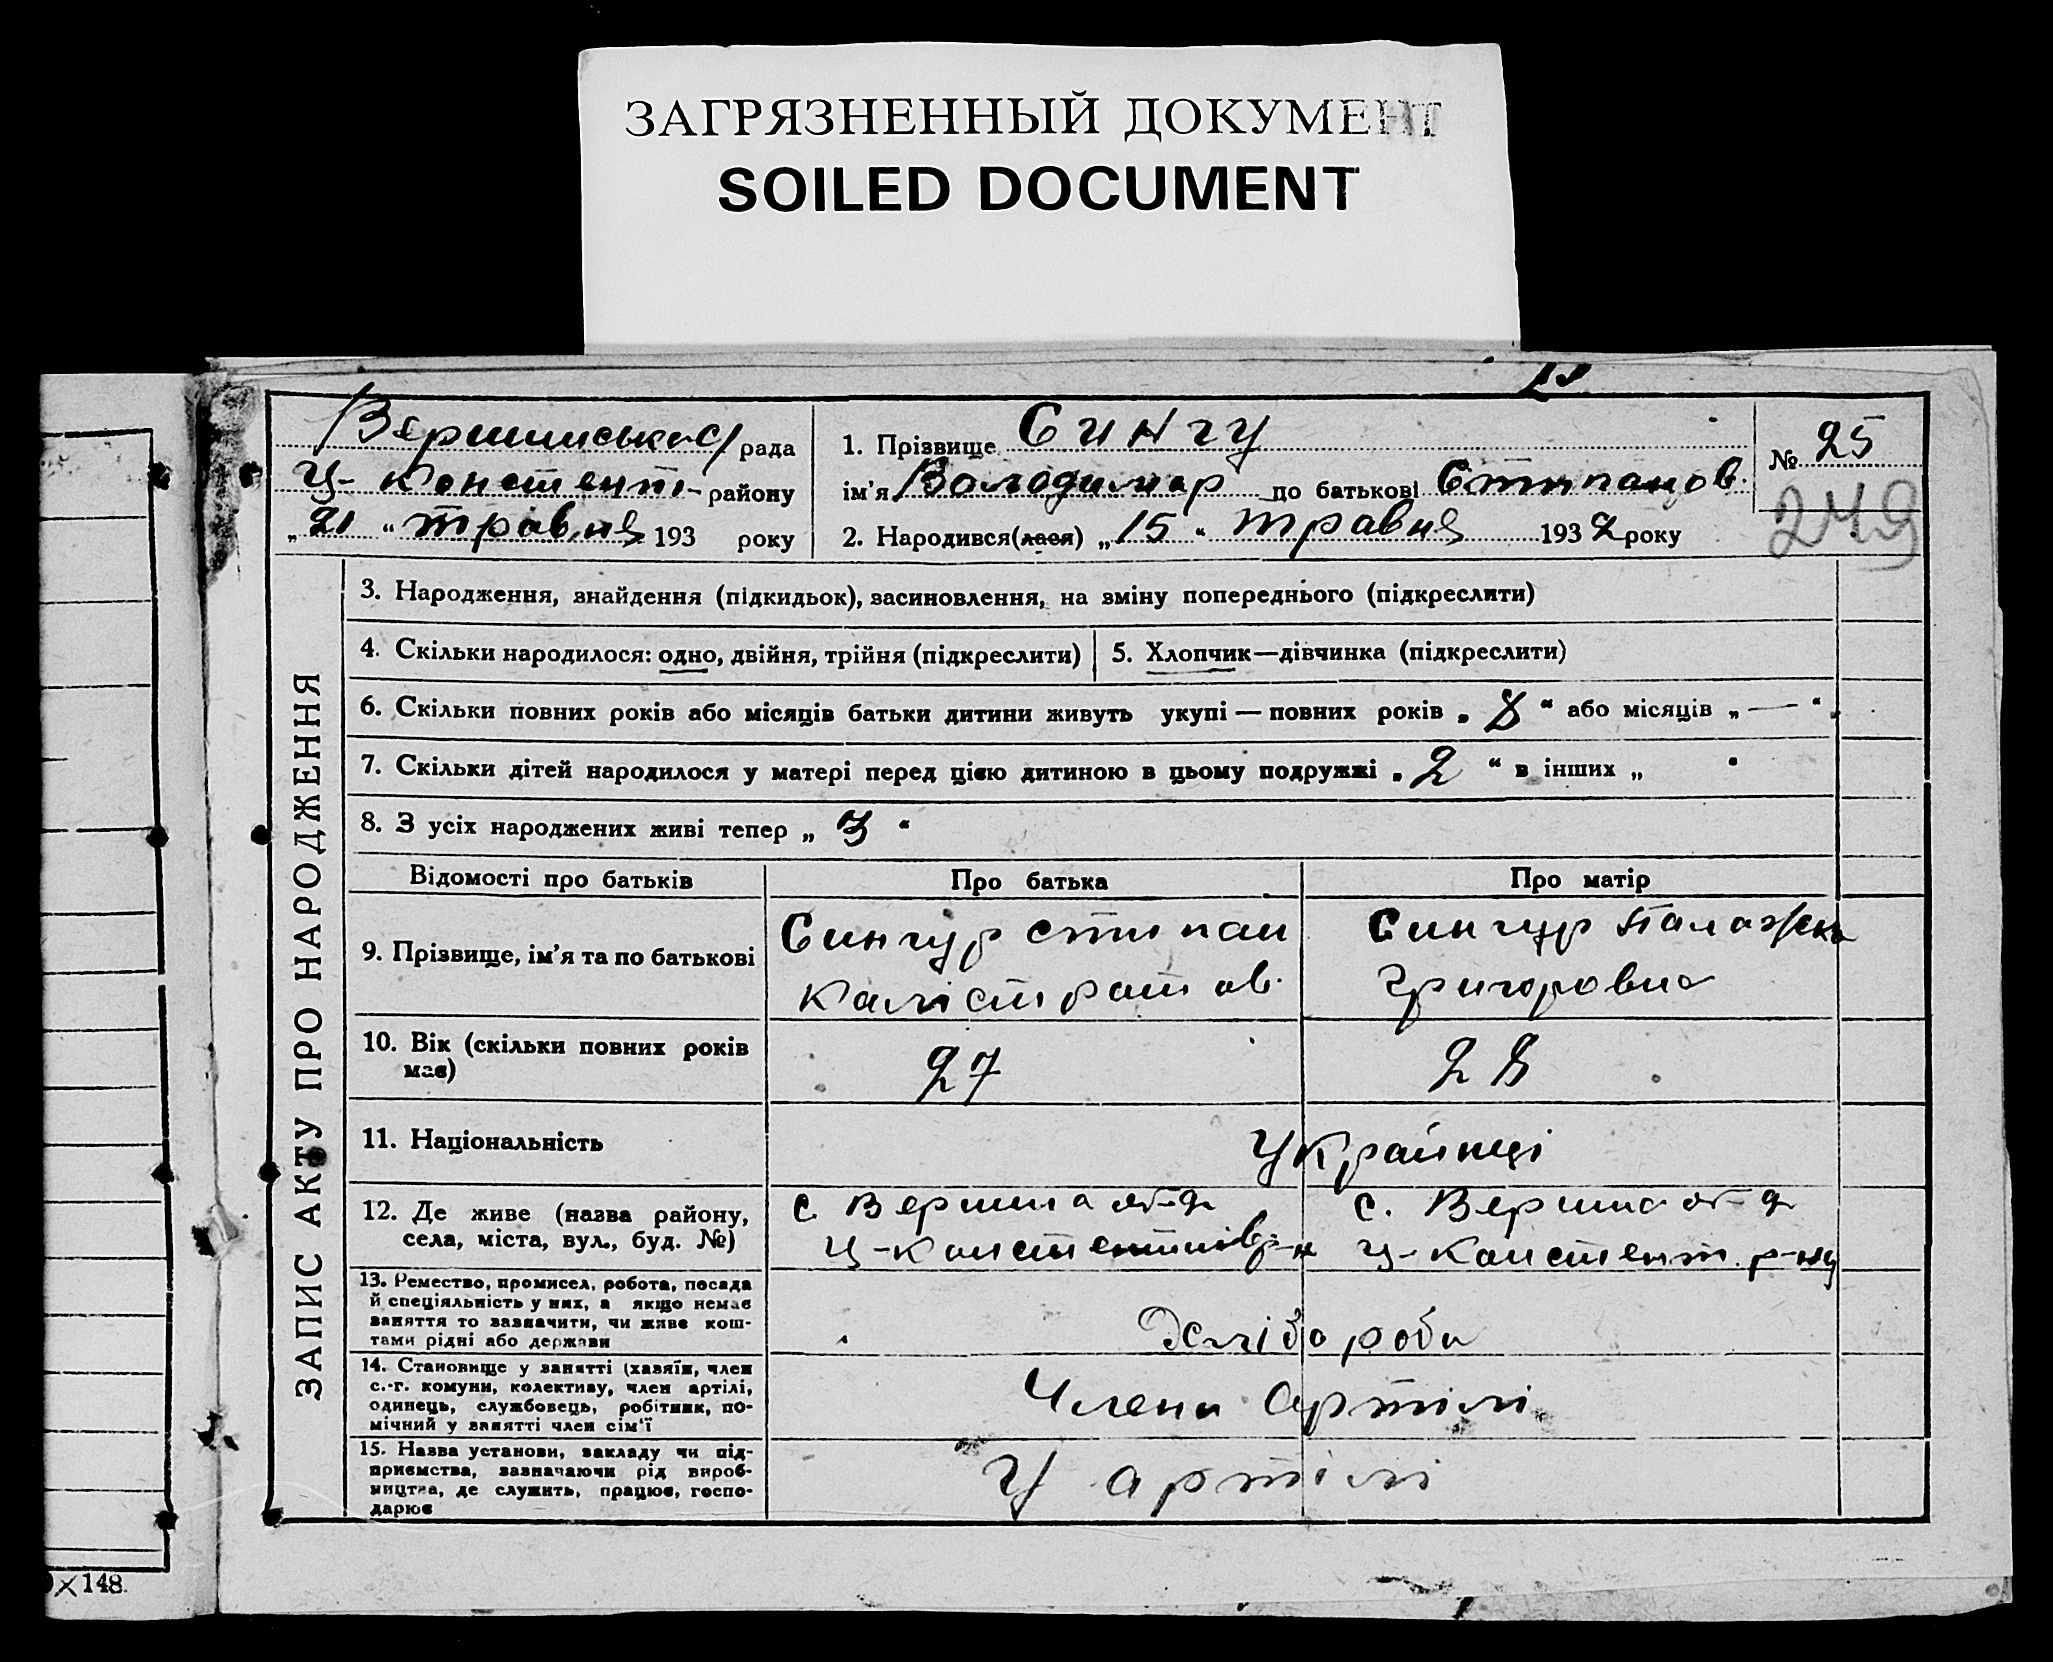 ЗАГРЯЗНЕННЫЙ ДОКУМЕНТ
SOILED DOCUMENT
рада
Ц-Констент-району
„21“ травня 193 року
1. Прізвище Сингу
ім'я Володимир по батькові Стипанов.
2. Народився(лася) „15“ травня 1932 року
№ 25
249
ЗАПИС АКТУ ПРО НАРОДЖЕННЯ
3. Народження, знайдення (підкидьок), засиновлення, на зміну попереднього (підкреслити)
4. Скільки народилося: одно, двійня, трійня (підкреслити)
5. Хлопчик—дівчинка (підкреслити)
6. Скільки повних років або місяців батьки дитини живуть укупі — повних років „8“ або місяців „—“
7. Скільки дітей народилося у матері перед цією дитиною в цьому подружжі „2“ в інших „ “
8. З усіх народжених живі тепер „3“
Відомості про батьків
Про батька
Про матір
9. Прізвище, ім'я та по батькові
Сингур Стипан
Калістратов.
Сингур Палажка
Григоровна
10. Вік (скільки повних років
має)
27
28
11. Національність
Українці
12. Де живе (назва району,
села, міста, вул., буд. №)
с Вершина
Ц-Констентинів р-н
с. Вершина
Ц-Констент. р-ну
13. Ремество, промисел, робота, посада
й спеціяльність у них, а якщо немає
заняття то зазначити, чи живе кош-
тами рідні або держави
Хлібороби
14. Становище у занятті (хазяїн, член
с.-г. комуни, колективу, член артілі,
одинець, службовець, робітник, по-
мічний у занятті член сім'ї
Члени Артілі
15. Назва установи, закладу чи під-
приємства, зазначаючи рід вироб-
ництва, де служить, працює, госпо-
дарює
У артілі
148.